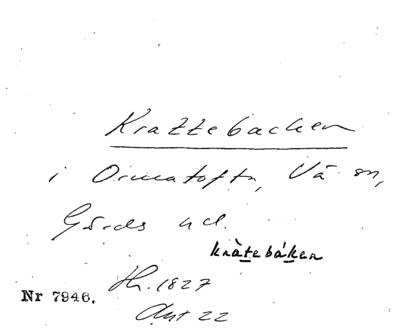 Krattebacken
i Ormatofta, Vä sn,
Gärds hd.
kràtebáken
Hr. 1827
Nr 7946.
Akt 22